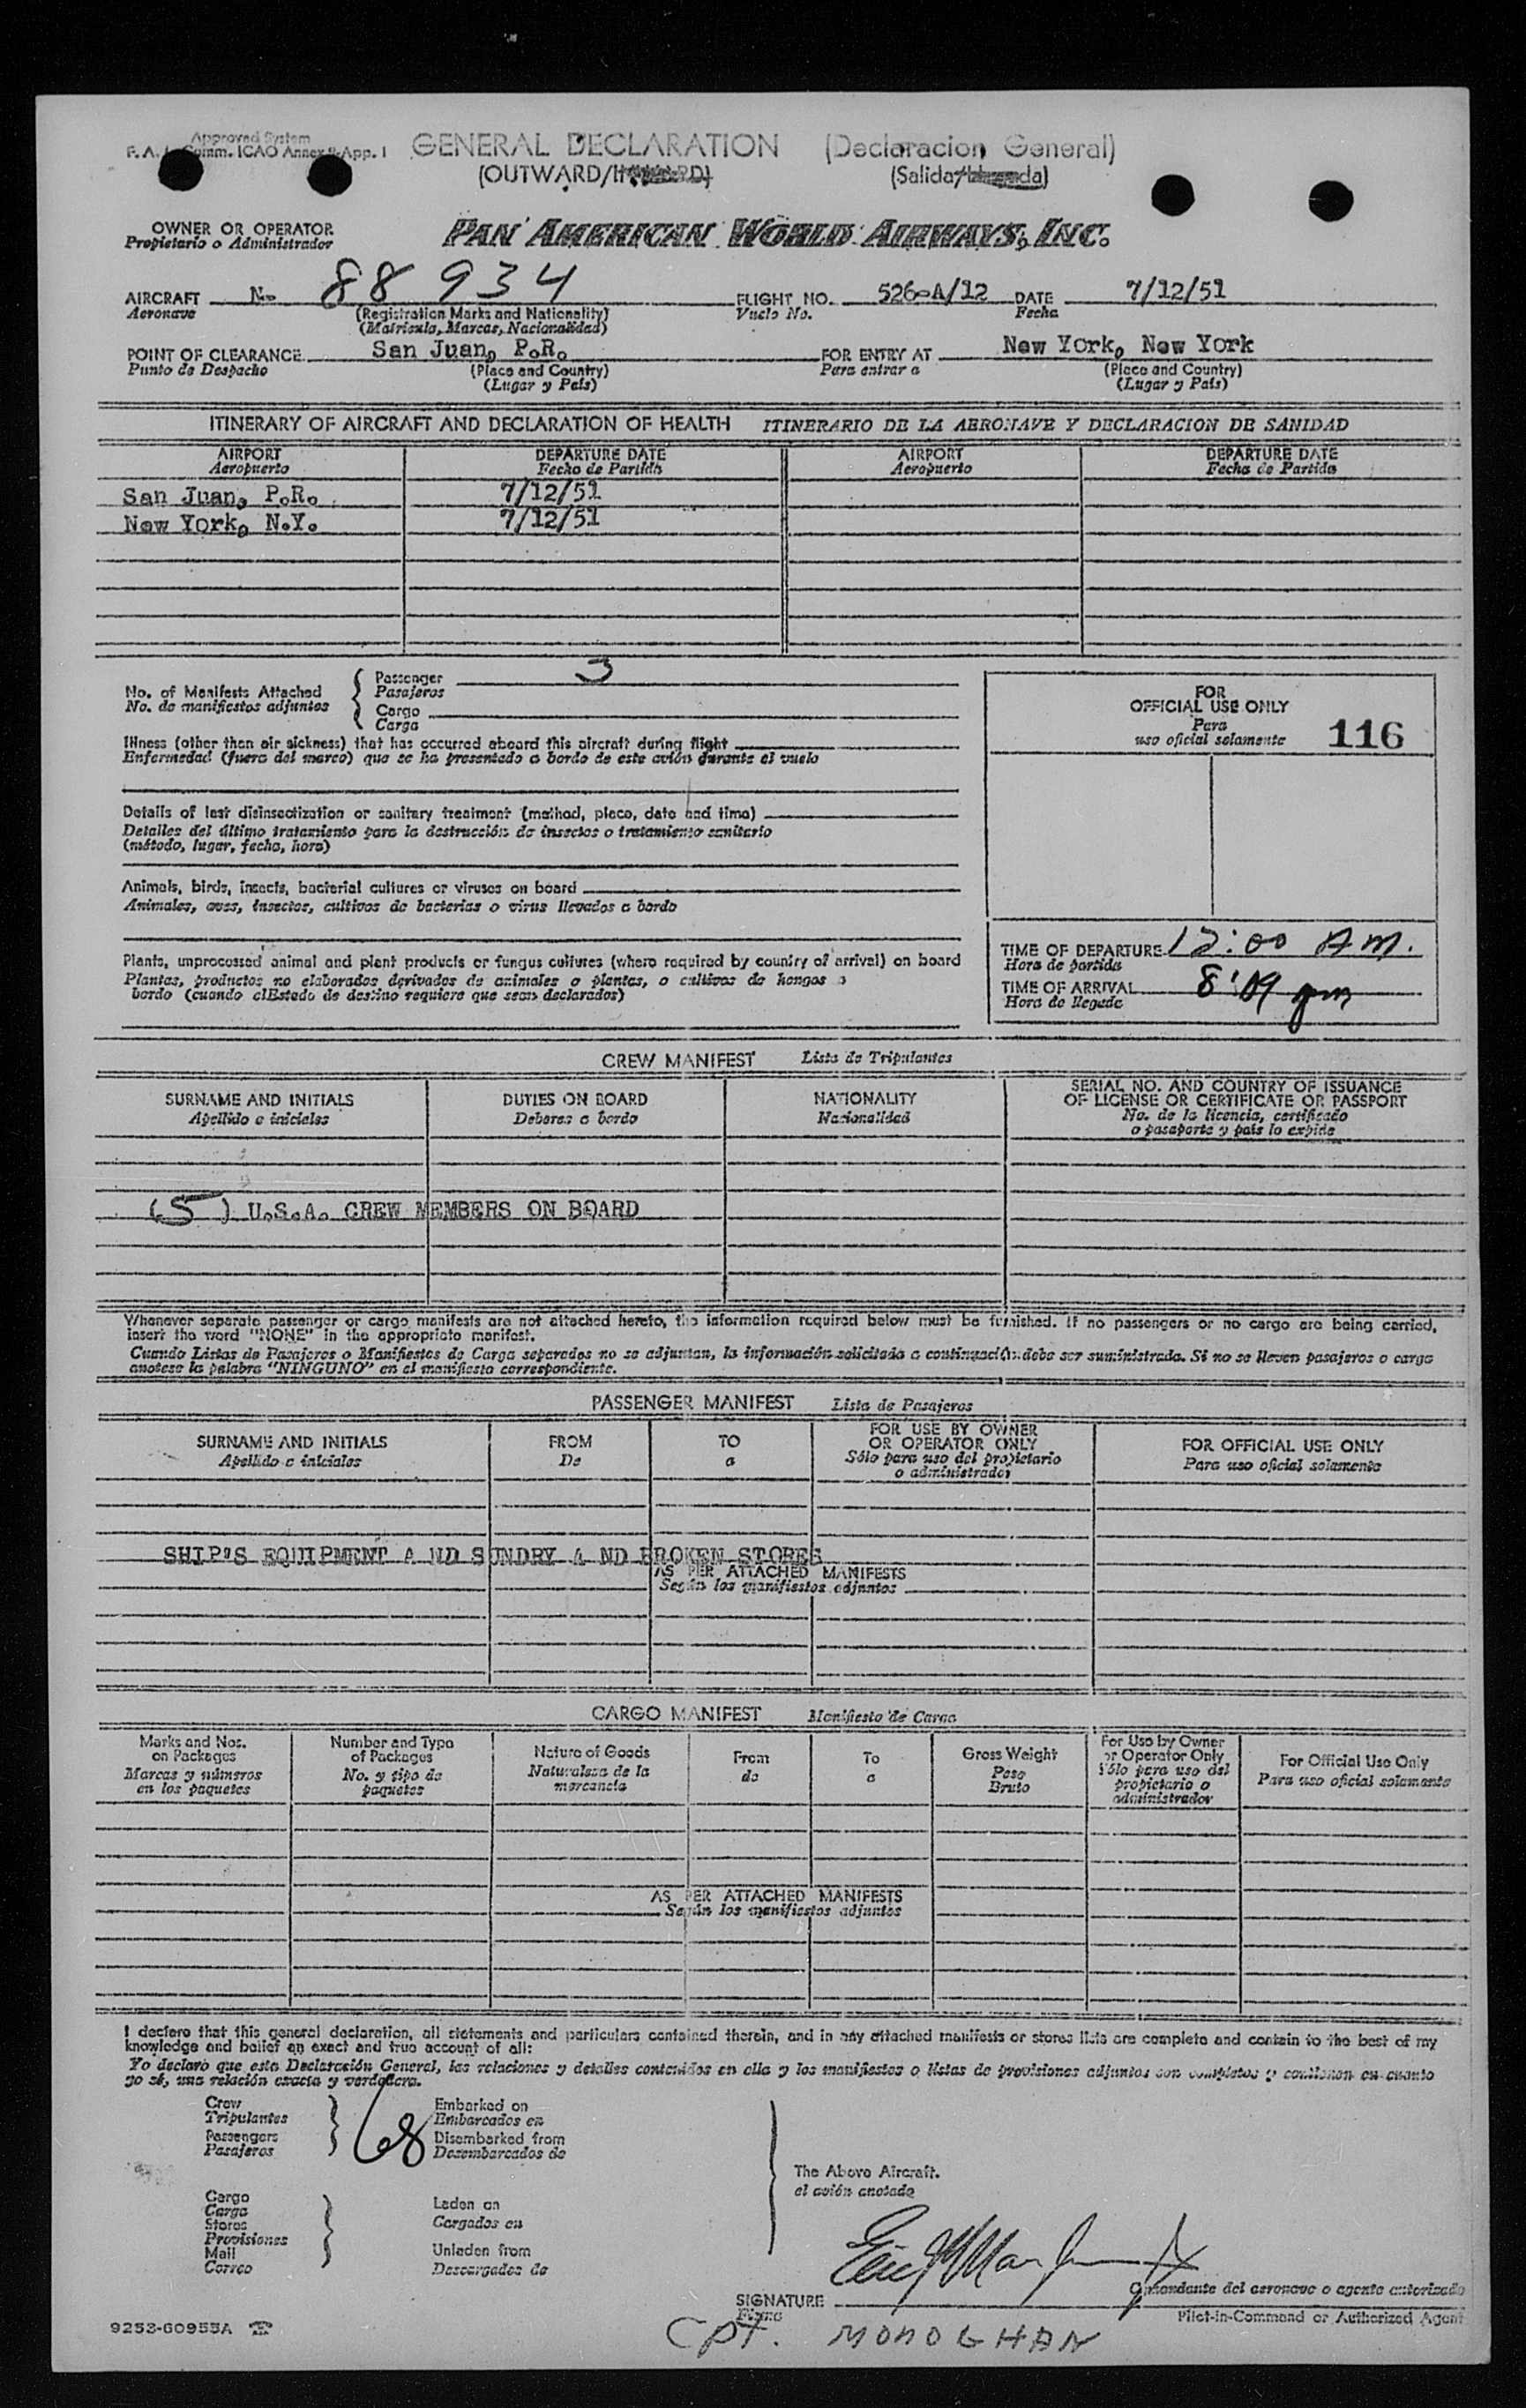 Approved System
F. A. L. Comm. ICAO Annex 9-App. 1
GENERAL DECLARATION (Declaracion General)
(OUTWARD/
(Salida/
OWNER OR OPERATOR
Propietario o Administrador
PAN AMERICAN WORLD AIRWAYS, INC.
AIRCRAFT N- 88 934 FLIGHT NO. 526-A/12 DATE 7/12/51
Aeronave (Registration Marks and Nationality) Vuelo No. Fecha
(Matricula, Marcas, Nacionalidad)
POINT OF CLEARANCE San Juan, P.R. FOR ENTRY AT New York, New York
Punto de Despacho (Place and Country) Para entrar a (Place and Country)
(Lugar y País) (Lugar y País)
ITINERARY OF AIRCRAFT AND DECLARATION OF HEALTH ITINERARIO DE LA AERONAVE Y DECLARACION DE SANIDAD
AIRPORT DEPARTURE DATE AIRPORT DEPARTURE DATE
Aeropuerto Fecha de Partida Aeropuerto Fecha de Partida
San Juan, P.R. 7/12/51
New York, N.Y. 7/12/51
No. of Manifests Attached Passenger 3
No. de manifiestos adjuntos Pasajeros
Cargo
Carga
FOR
OFFICIAL USE ONLY
Para
uso oficial solamente 116
Illness (other than air sickness) that has occurred aboard this aircraft during flight
Enfermedad (fuera del mareo) que se ha presentado a bordo de este avión durante el vuelo
Details of last disinsectization or sanitary treatment (method, place, date and time)
Detalles del último tratamiento para la destrucción de insectos o tratamiento sanitario
(método, lugar, fecha, hora)
Animals, birds, insects, bacterial cultures or viruses on board
Animales, aves, insectos, cultivos de bacterias o virus llevados a bordo
Plants, unprocessed animal and plant products or fungus cultures (where required by country of arrival) on board
Plantas, productos no elaborados derivados de animales o plantas, o cultivos de hongos a
bordo (cuando elEstado de destino requiere que sean declarados)
TIME OF DEPARTURE 12:00 A.M.
Hora de partida
TIME OF ARRIVAL 8:09 pm
Hora de llegada
CREW MANIFEST Lista de Tripulantes
SURNAME AND INITIALS DUTIES ON BOARD NATIONALITY SERIAL NO. AND COUNTRY OF ISSUANCE
OF LICENSE OR CERTIFICATE OR PASSPORT
Apellido e iniciales Deberes a bordo Nacionalidad No. de la licencia, certificado
o pasaporte y país lo expide
(5) U.S.A. CREW MEMBERS ON BOARD
Whenever separate passenger or cargo manifests are not attached hereto, the information required below must be furnished. If no passengers or no cargo are being carried,
insert the word "NONE" in the appropriate manifest.
Cuando Listas de Pasajeros o Manifiestos de Carga separados no se adjuntan, la información solicitada a continuación debe ser suministrada. Si no se lleven pasajeros o carga
anotese la palabra "NINGUNO" en el manifiesto correspondiente.
PASSENGER MANIFEST Lista de Pasajeros
SURNAME AND INITIALS FROM TO FOR USE BY OWNER
OR OPERATOR ONLY FOR OFFICIAL USE ONLY
Apellido e iniciales De a Sólo para uso del propietario
o administrador Para uso oficial solamente
SHIP'S EQUIPMENT A ND SUNDRY A ND BROKEN STORES
AS PER ATTACHED MANIFESTS
Según los manifiestos adjuntos
CARGO MANIFEST Manifiesto de Carga
Marks and Nos.
on Packages
Marcas y números
en los paquetes
Number and Type
of Packages
No. y tipo de
paquetes
Nature of Goods
Naturaleza de la
mercancia
From
de
To
a
Gross Weight
Peso
Bruto
For Use by Owner
or Operator Only
Sólo para uso del
propietario o
administrador
For Official Use Only
Para uso oficial solamente
AS PER ATTACHED MANIFESTS
Según los manifiestos adjuntos
I declare that this general declaration, all statements and particulars contained therein, and in any attached manifests or stores lists are complete and contain to the best of my
knowledge and belief an exact and true account of all:
Yo declaro que esta Declaración General, las relaciones y detalles contenidos en ella y los manifiestos o listas de provisiones adjuntos son completos y contienen en cuanto
yo sé, una relación exacta y verdadera.
Crew
Tripulantes
Passengers
Pasajeros
68
Embarked on
Embarcados en
Disembarked from
Desembarcados de
The Above Aircraft.
el avión anotado
Cargo
Carga
Stores
Provisiones
Mail
Correo
Laden on
Cargados en
Unladen from
Descargados de
SIGNATURE
Firma
Comandante del aeronave o agente autorizado
Pilot-in-Command or Authorized Agent
9253-60955A
CPT. MONOGHAN